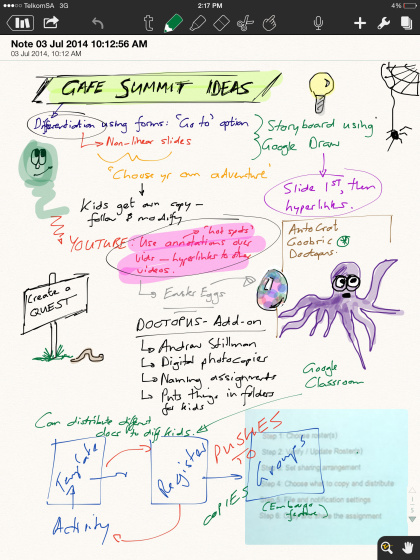 TelkomSA 3G
2:17 PM
4%
Note 03 Jul 2014 10:12:56 AM
03 Jul 2014, 10:12 AM
GAFE SUMMIT IDEAS
Differentiation using forms: "Go to" option
↳ Non-linear slides
Storyboard using
Google Draw
"Choose yr own adventure"
Slide 1st, then
hyperlinks.
Kids get own copy –
follow & modify
"hot spots"
YOUTUBE: Use annotations over
vids – hyperlinks to other
videos.
AutoCrat
Goobric
Doctopus.
↳ Easter Eggs
Create a
QUEST
DOCTOPUS - Add-on
↳ Andrew Stillman
↳ Digital photocopier
↳ Naming assignments
↳ Puts things in folders
for kids
Google
Classroom
Can distribute different
docs to diff kids.
Template
Register
PUSHES
TO
Groups
COPIES
Activity
Step 1: Choose roster(s)
Step 2: Verify / Update Roster(s)
Step 3: Set sharing arrangement
Step 4: Choose what to copy and distribute
Step 5: File and notification settings